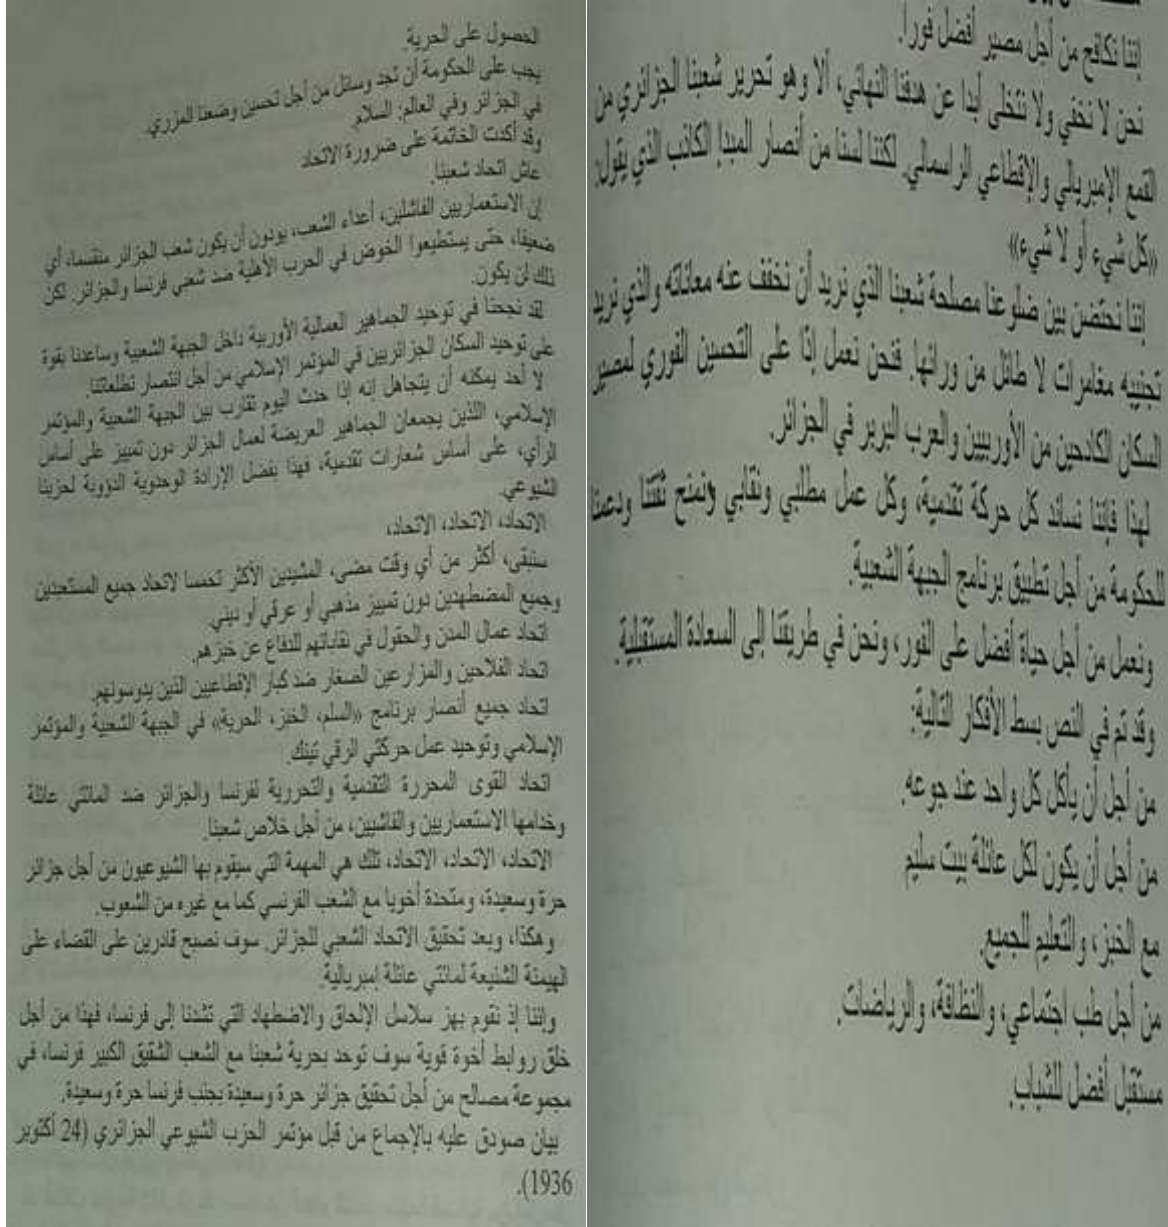 إننا نكافح من أجل مصير أفضل فورا.
نحن لا نخفي ولا نتخلى أبدا عن هدفنا النهائي، ألا وهو تحرير شعبنا الجزائري من
القمع الإمبريالي والإقطاعي الراسمالي. لكننا لسنا من أنصار المبدإ الكاذب الذي يقول:
«كل شيء أو لا شيء»
إننا نحتضن بين ضلوعنا مصلحة شعبنا الذي نريد أن نخفف عنه معاناته والذي نريد
تجنيبه مغامرات لا طائل من ورائها. فنحن نعمل إذا على التحسين الفوري لمصير
السكان الكادحين من الأوربيين والعرب البربر في الجزائر.
لهذا فإننا نساند كل حركة تقدمية، وكل عمل مطلبي ونقابي ونمنح ثقتنا ودعمنا
للحكومة من أجل تطبيق برنامج الجبهة الشعبية.
ونعمل من أجل حياة أفضل على الفور، ونحن في طريقنا إلى السعادة المستقبلية.
وقد تم في النص بسط الأفكار التالية:
من أجل أن يأكل كل واحد عند جوعه.
من أجل أن يكون لكل عائلة بيت سليم
مع الخبز، والتعليم للجميع.
من أجل طب اجتماعي، والنظافة، والرياضات.
مستقبل أفضل للشباب.
الحصول على الحرية.
يجب على الحكومة أن تجد وسائل من أجل تحسين وضعنا المزري.
في الجزائر وفي العالم: السلام.
وقد أكدت الخاتمة على ضرورة الاتحاد
عاش اتحاد شعبنا.
إن الاستعماريين الفاشلين، أعداء الشعب، يودون أن يكون شعب الجزائر منقسما، أي
ضعيفا، حتى يستطيعوا الخوض في الحرب الأهلية ضد شعبي فرنسا والجزائر. لكن
ذلك لن يكون.
لقد نجحنا في توحيد الجماهير العمالية الأوربية داخل الجبهة الشعبية وساعدنا بقوة
على توحيد السكان الجزائريين في المؤتمر الإسلامي من أجل انتصار تطلعاتنا.
لا أحد يمكنه أن يتجاهل إنه إذا حدث اليوم تقارب بين الجبهة الشعبية والمؤتمر
الإسلامي، اللذين يجمعان الجماهير العريضة لعمال الجزائر دون تمييز على أساس
الرأي، على أساس شعارات تقدمية، فهذا بفضل الإرادة الوحدوية الدؤوبة لحزبنا
الشيوعي.
الاتحاد، الاتحاد، الاتحاد،
سنبقى، أكثر من أي وقت مضى، المشيدين الأكثر تحمسا لاتحاد جميع المستعبدين
وجميع المضطهدين دون تمييز مذهبي أو عرقي أو ديني.
اتحاد عمال المدن والحقول في نقاباتهم للدفاع عن خبزهم.
اتحاد الفلاحين والمزارعين الصغار ضد كبار الإقطاعيين الذين يدوسونهم.
اتحاد جميع أنصار برنامج «السلم، الخبز، الحرية» في الجبهة الشعبية والمؤتمر
الإسلامي وتوحيد عمل حركتي الرقي تينك.
اتحاد القوى المحررة التقدمية والتحررية لفرنسا والجزائر ضد المائتي عائلة
وخدامها الاستعماريين والفاشيين، من أجل خلاص شعبنا.
الاتحاد، الاتحاد، الاتحاد، تلك هي المهمة التي سيقوم بها الشيوعيون من أجل جزائر
حرة وسعيدة، ومتحدة أخويا مع الشعب الفرنسي كما مع غيره من الشعوب.
وهكذا، وبعد تحقيق الاتحاد الشعبي للجزائر. سوف نصبح قادرين على القضاء على
الهيمنة الشنيعة لمائتي عائلة إمبريالية.
وإننا إذ نقوم بهز سلاسل الإلحاق والاضطهاد التي تشدنا إلى فرنسا، فهذا من أجل
خلق روابط أخوة قوية سوف توحد بحرية شعبنا مع الشعب الشقيق الكبير فرنسا، في
مجموعة مصالح من أجل تحقيق جزائر حرة وسعيدة بجنب فرنسا حرة وسعيدة.
بيان صودق عليه بالإجماع من قبل مؤتمر الحزب الشيوعي الجزائري (24 أكتوبر
1936).